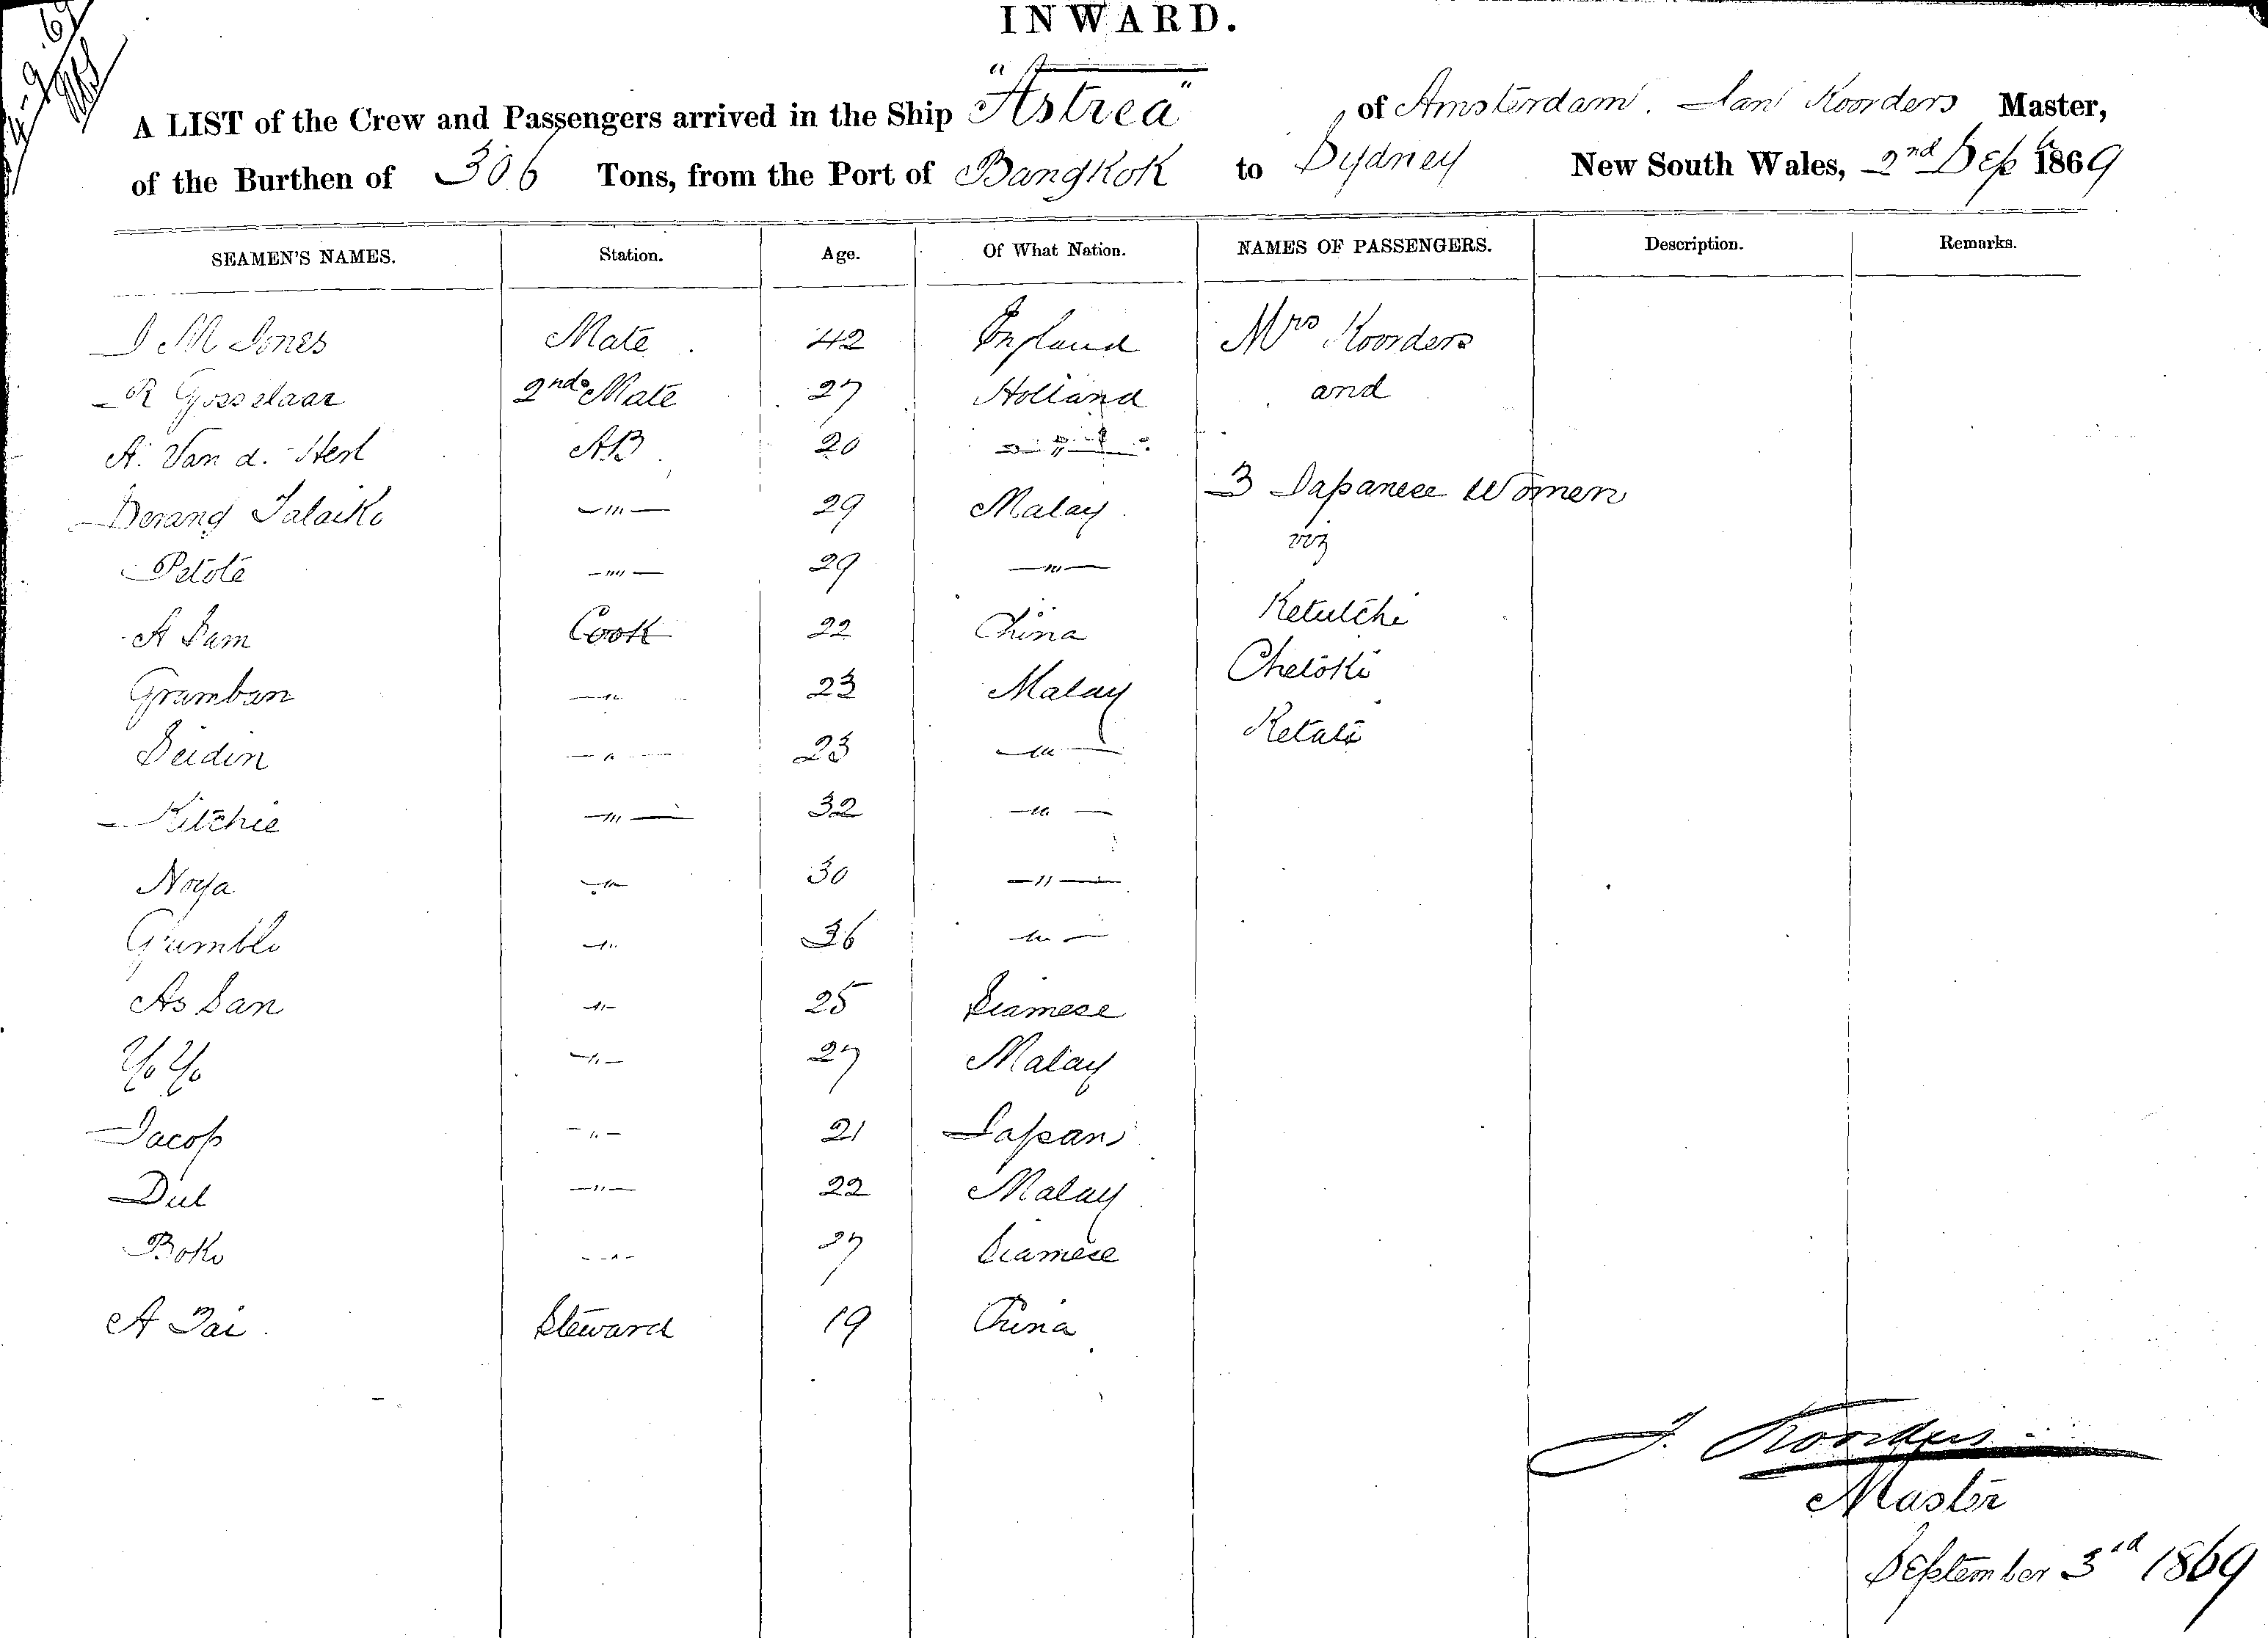 INWARD.
A LIST of the Crew and Passengers arrived in the Ship "Astrea" of Amsterdam. Jan Koorders Master,
of the Burthen of 306 Tons, from the Port of Bangkok to Sydney New South Wales, 2nd Sept 1869
SEAMEN'S NAMES. Station. Age. Of What Nation. NAMES OF PASSENGERS. Description. Remarks.
J M Jones Mate 42 England Mrs Koorders
R Gosselaar 2nd Mate 27 Holland and
A. Van d. AB 20 —"—
Serang —"— 29 Malay 3 Japanese Women
Petote —"— 29 —"— viz
A Sam Cook 22 China Ketutchi
Gramban —"— 23 Malay Chetoki
Seidin —"— 23 —"— Ketati
Kitchie —"— 32 —"—
Noya —"— 30 —"—
Grumblo —"— 36 —"—
As San —"— 25 Siamese
Yo Yo —"— 27 Malay
Jacop —"— 21 Japan
Dul —"— 22 Malay
Boko —"— 27 Siamese
A Tai Steward 19 China
J. Koorders
Master
September 3rd 1869